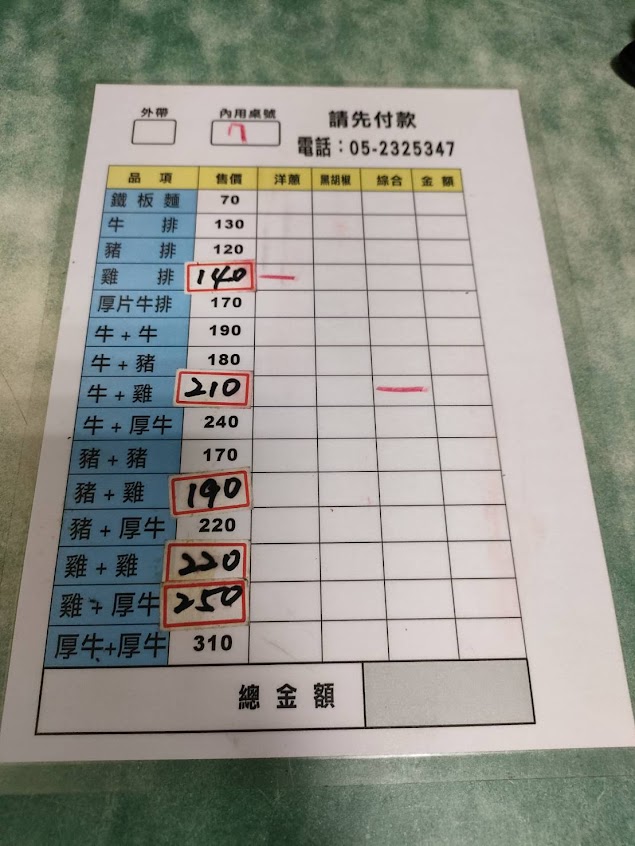 外帶 內用桌號 請先付款
7 電話：05-2325347
品項 售價 洋蔥 黑胡椒 綜合 金額
鐵板麵 70
牛排 130
豬排 120
雞排 140
厚片牛排 170
牛+牛 190
牛+豬 180
牛+雞 210
牛+厚牛 240
豬+豬 170
豬+雞 190
豬+厚牛 220
雞+雞 220
雞+厚牛 250
厚牛+厚牛 310
總金額